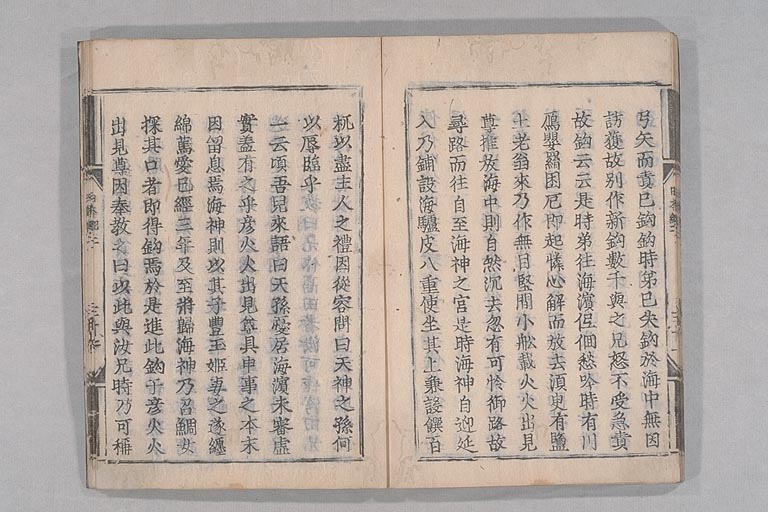 弓矢而責已鈎鈎時弟已失鈎於海中無因
訪獲故別作新鈎數千與之兄怒不受急責
故鈎云云是時弟往海濱低佪愁吟時有川
鴈嬰羂困厄即起憐心解而放去須臾有鹽
土老翁來乃作無目堅間小舩載火火出見
尊推放海中則自然沉去忽有可怜御路故
尋路而往自至海神之宮是時海神自迎延
入乃鋪設海驢皮八重使坐其上兼設饌百
机以盡主人之禮因從容問曰天神之孫何
以辱臨乎
一云頃吾兒來語曰天孫憂居海濱未審虛
實蓋有之乎彦火火出見尊具申事之本末
因留息焉海神則以其子豊玉姫妻之遂纏
綿篤愛已經三年及至將歸海神乃召鯛女
探其口者即得鈎焉於是進此鈎于彦火火
出見尊因奉教之曰以此與汝兄時乃可稱